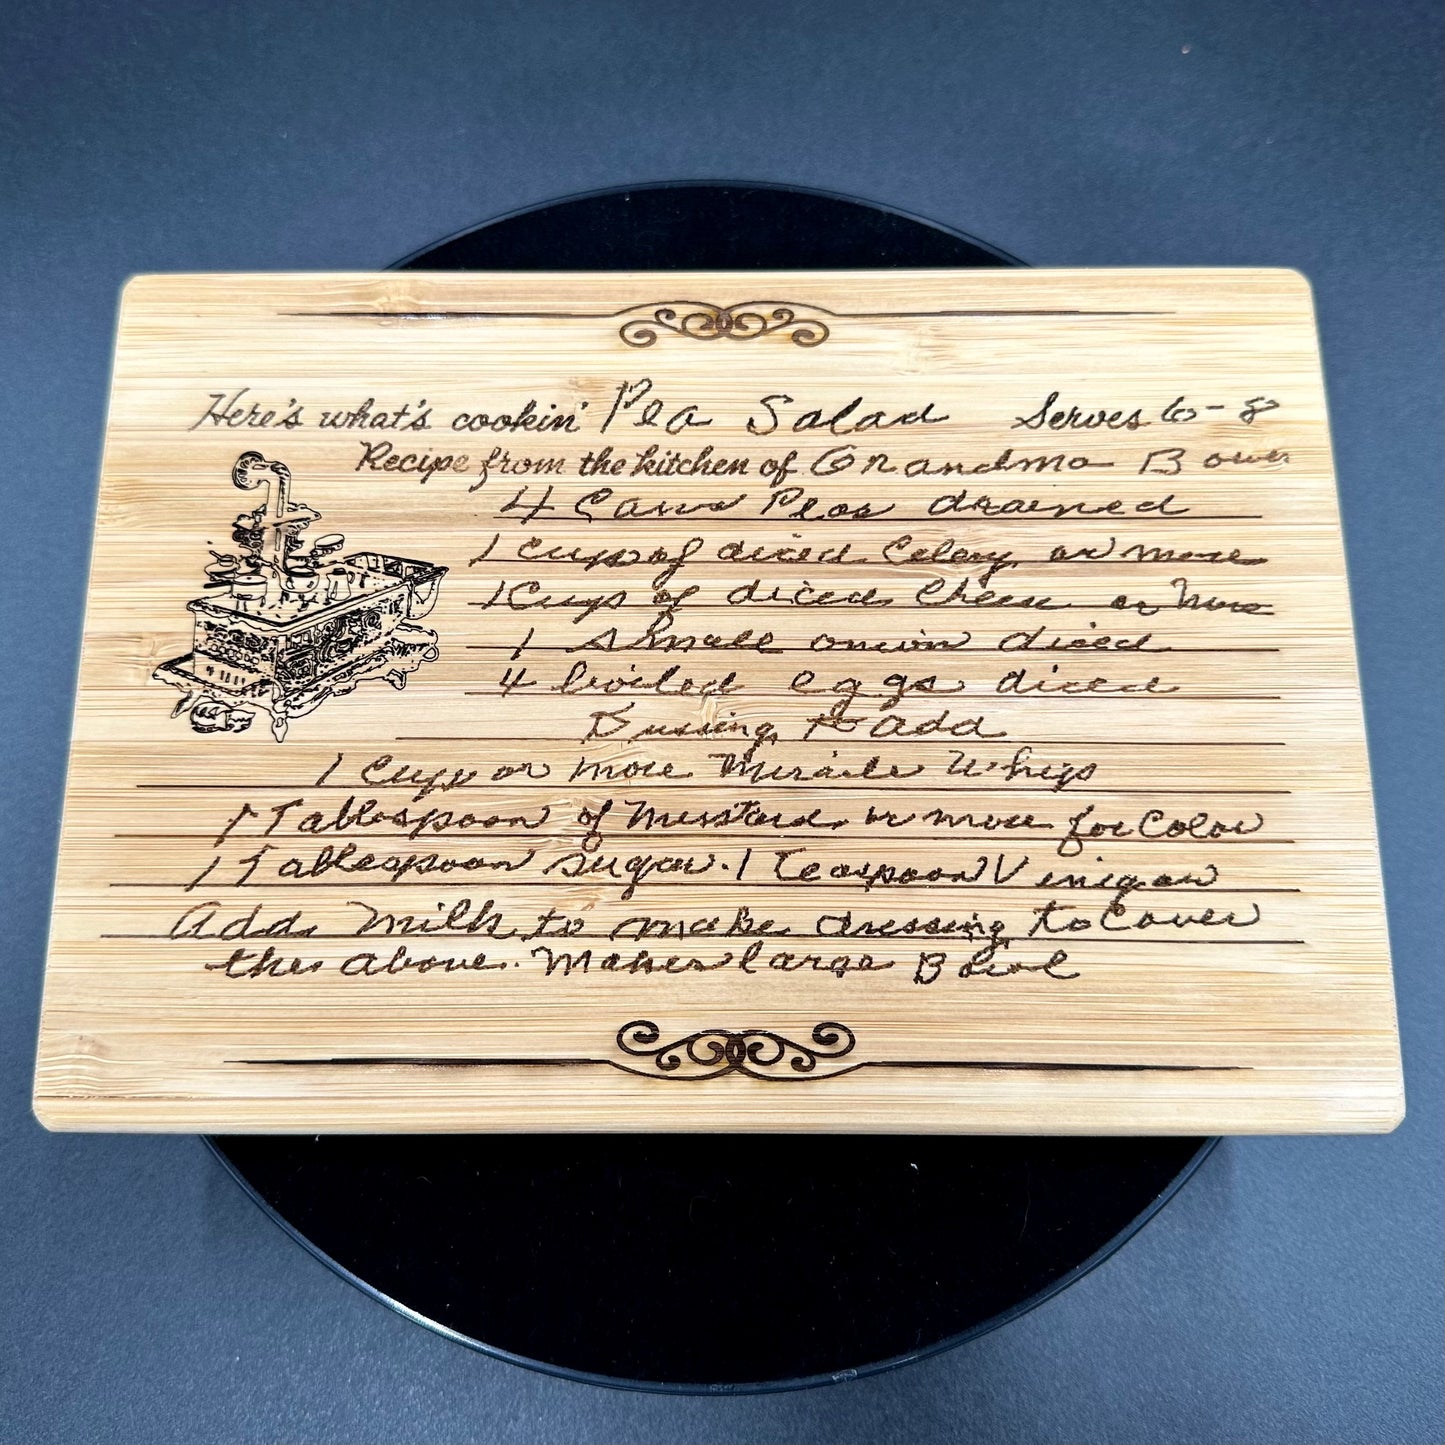 Here's what's cookin' Pea Salad Serves 6-8
Recipe from the kitchen of Grandma Bower
4 Cans Peas drained
1 Cup of diced Celery or more
1 Cup of diced Cheese or More
1 small onion diced
4 boiled eggs diced
Dressing to add
1 Cup or more Miracle Whip
1 Tablespoon of Mustard or more for Color
1 Tablespoon sugar. 1 Teaspoon Vinigar
Add Milk to make dressing to Cover
the above. Makes large Bowl